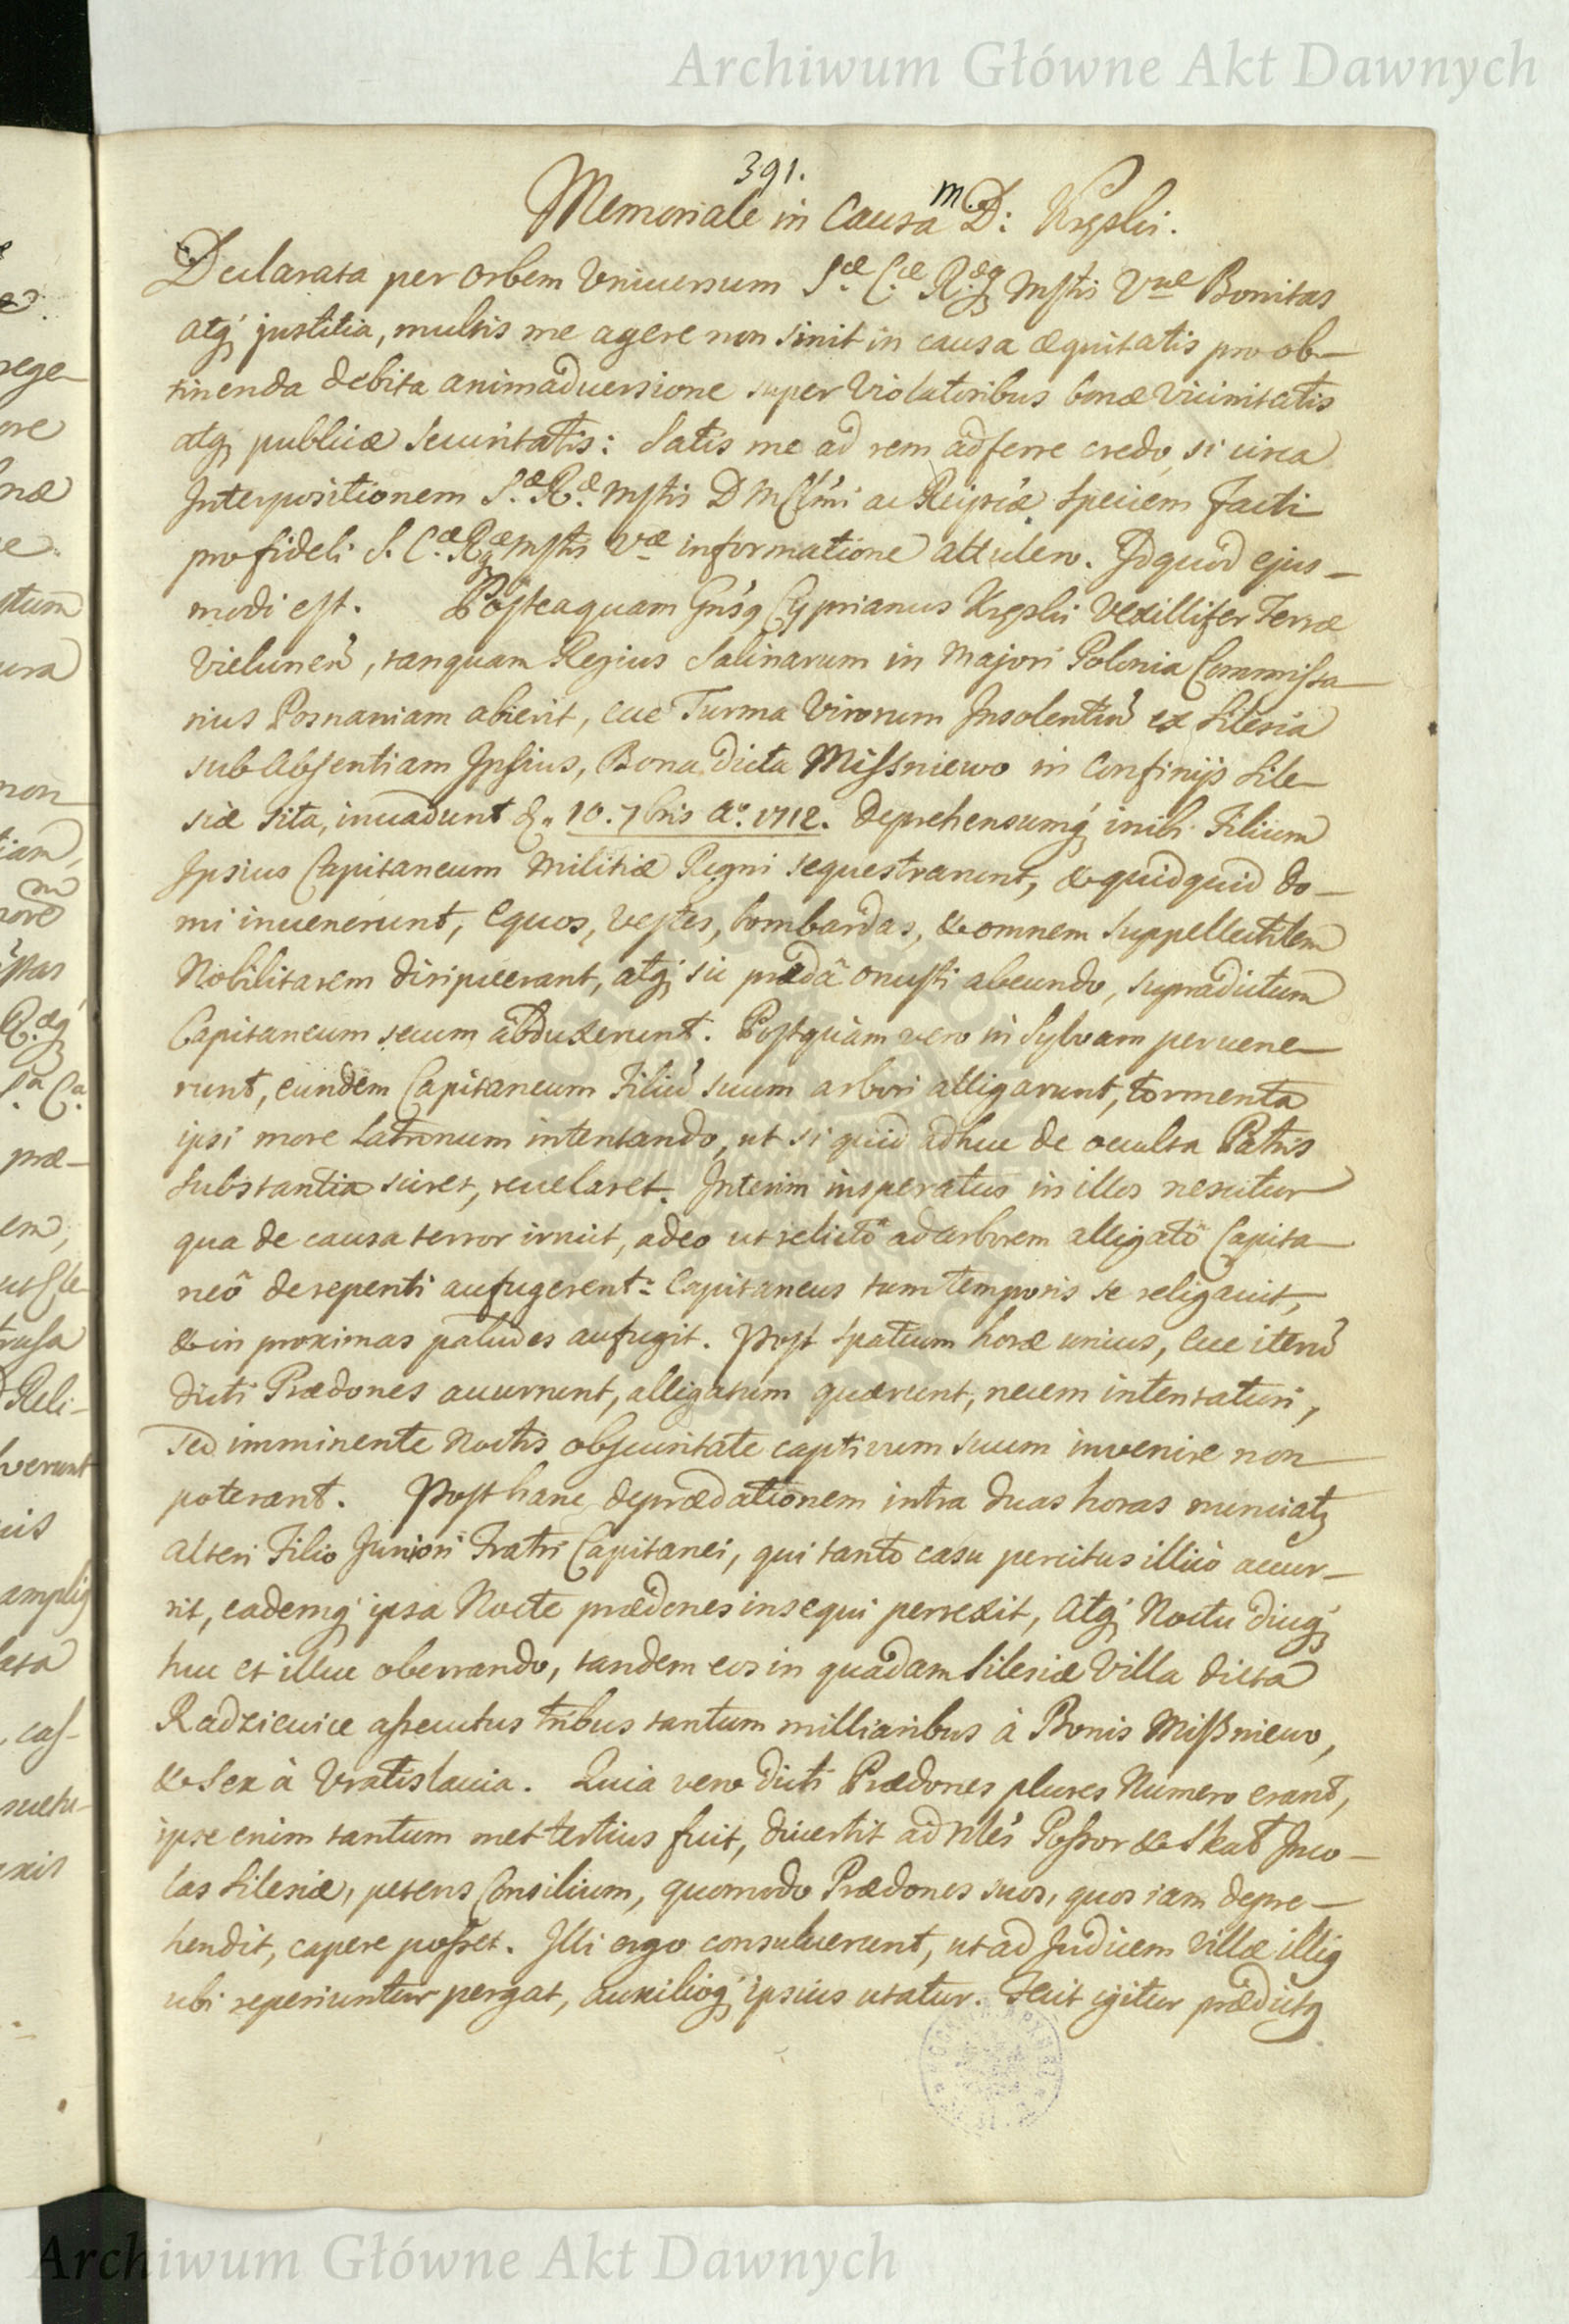 Archiwum Główne Akt Dawnych
391.
Memoriale in Causa M. D: Krzyski.
Declarata per Orbem Universum S.æ C.æ R.æq Mstis Vræ Bonitas
atq justitia, multis me agere non sinit in causa æquitatis pro ob-
tinenda debita animadversione super Violatoribus bonæ Vicinitatis
atq publicæ Securitatis: Satis me ad rem adferre credo, si circa
Interpositionem S.æ R.æ Mstis D M Clmi ac Reipcæ Speciem facti
pro fideli S. C.æ R.æ Mstis Væ informatione attulero. Id quod ejus-
modi est. Posteaquam Gnsq Cyprianus Krzyski Vexillifer Terræ
Vielunen, tanquam Regius Salinarum in Majori Polonia Commissa-
rius Posnaniam abierit, ecce Turma Virorum Insolentiu ex Silesia
sub Absentiam Ipsius, Bona dicta Missniewo in Confinijs Sile-
siæ sita, invadunt d. 10. 7bris Ao. 1712. Deprehensumq inibi Filium
Ipsius Capitaneum Militiæ Regni sequestrarunt, & quidquid do-
mi invenerunt, Equos, Vestes, bombardas, & omnem Suppellectilem
Nobilitarem diripuerant, atq sic prædâ onusti abeundo, supradictum
Capitaneum secum abduxerunt. Postquam vero in Sylvam pervene-
runt, eundem Capitaneum Filiu suum arbori alligarunt, tormenta
ipsi more Latronum intentando, ut si quid adhuc de occulta Patris
Substantia sciret, revelaret. Interim insperatus in illos nescitur
qua de causa terror irruit, adeo ut relictô ad arborem alligatô Capita-
neô derepenti aufugerent: Capitaneus tum temporis se religavit,
& in proximas paludes aufugit. Post Spatium horæ unius, Ecce iteru
dicti Prædones accurrunt, alligatum quærunt, necem intentaturi,
Sed imminente Noctis obscuritate captivum suum invenire non
poterant. Post hanc deprædationem intra duas horas nunciatq
Alteri Filio Juniori Fratri Capitanei, qui tanto casu percitus illicò accur-
rit, eademq ipsa Nocte prædones insequi perrexit, Atq Noctu diuq
huc et illuc oberrando, tandem eos in quadam Silesiæ Villa dicta
Radziewice assecutus tribus tantum milliaribus à Bonis Missniewo,
& Sex à Vratislavia. Quia vero dicti Prædones plures Numero erant,
ipse enim tantum met tertius fuit, divertit ad Nles Possor & Skal Inco-
las Silesiæ, petens Consilium, quomodo Prædones suos, quos iam depre-
hendit, capere posset. Illi ergo consuluerunt, ut ad Judicem Villæ illiq
ubi reperiuntur pergat, auxilioq ipsius utatur. Fecit igitur prædictq
Archiwum Główne Akt Dawnych